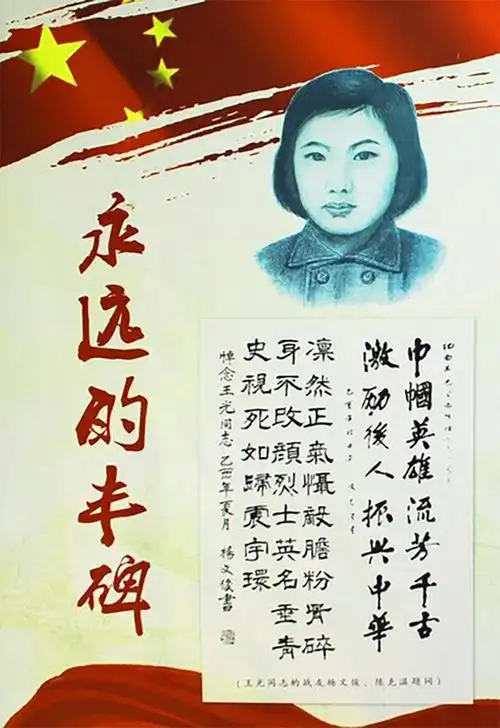 永远的丰碑
巾幗英雄流芳千古
激励後人振兴中華
凛然正氣懾敵膽粉骨碎
身不改顔烈士英名垂青
史視死如歸震宇環
悼念王光同志 乙酉年夏月 楊文俊書
(王光同志的战友杨文俊、陈克温题词)